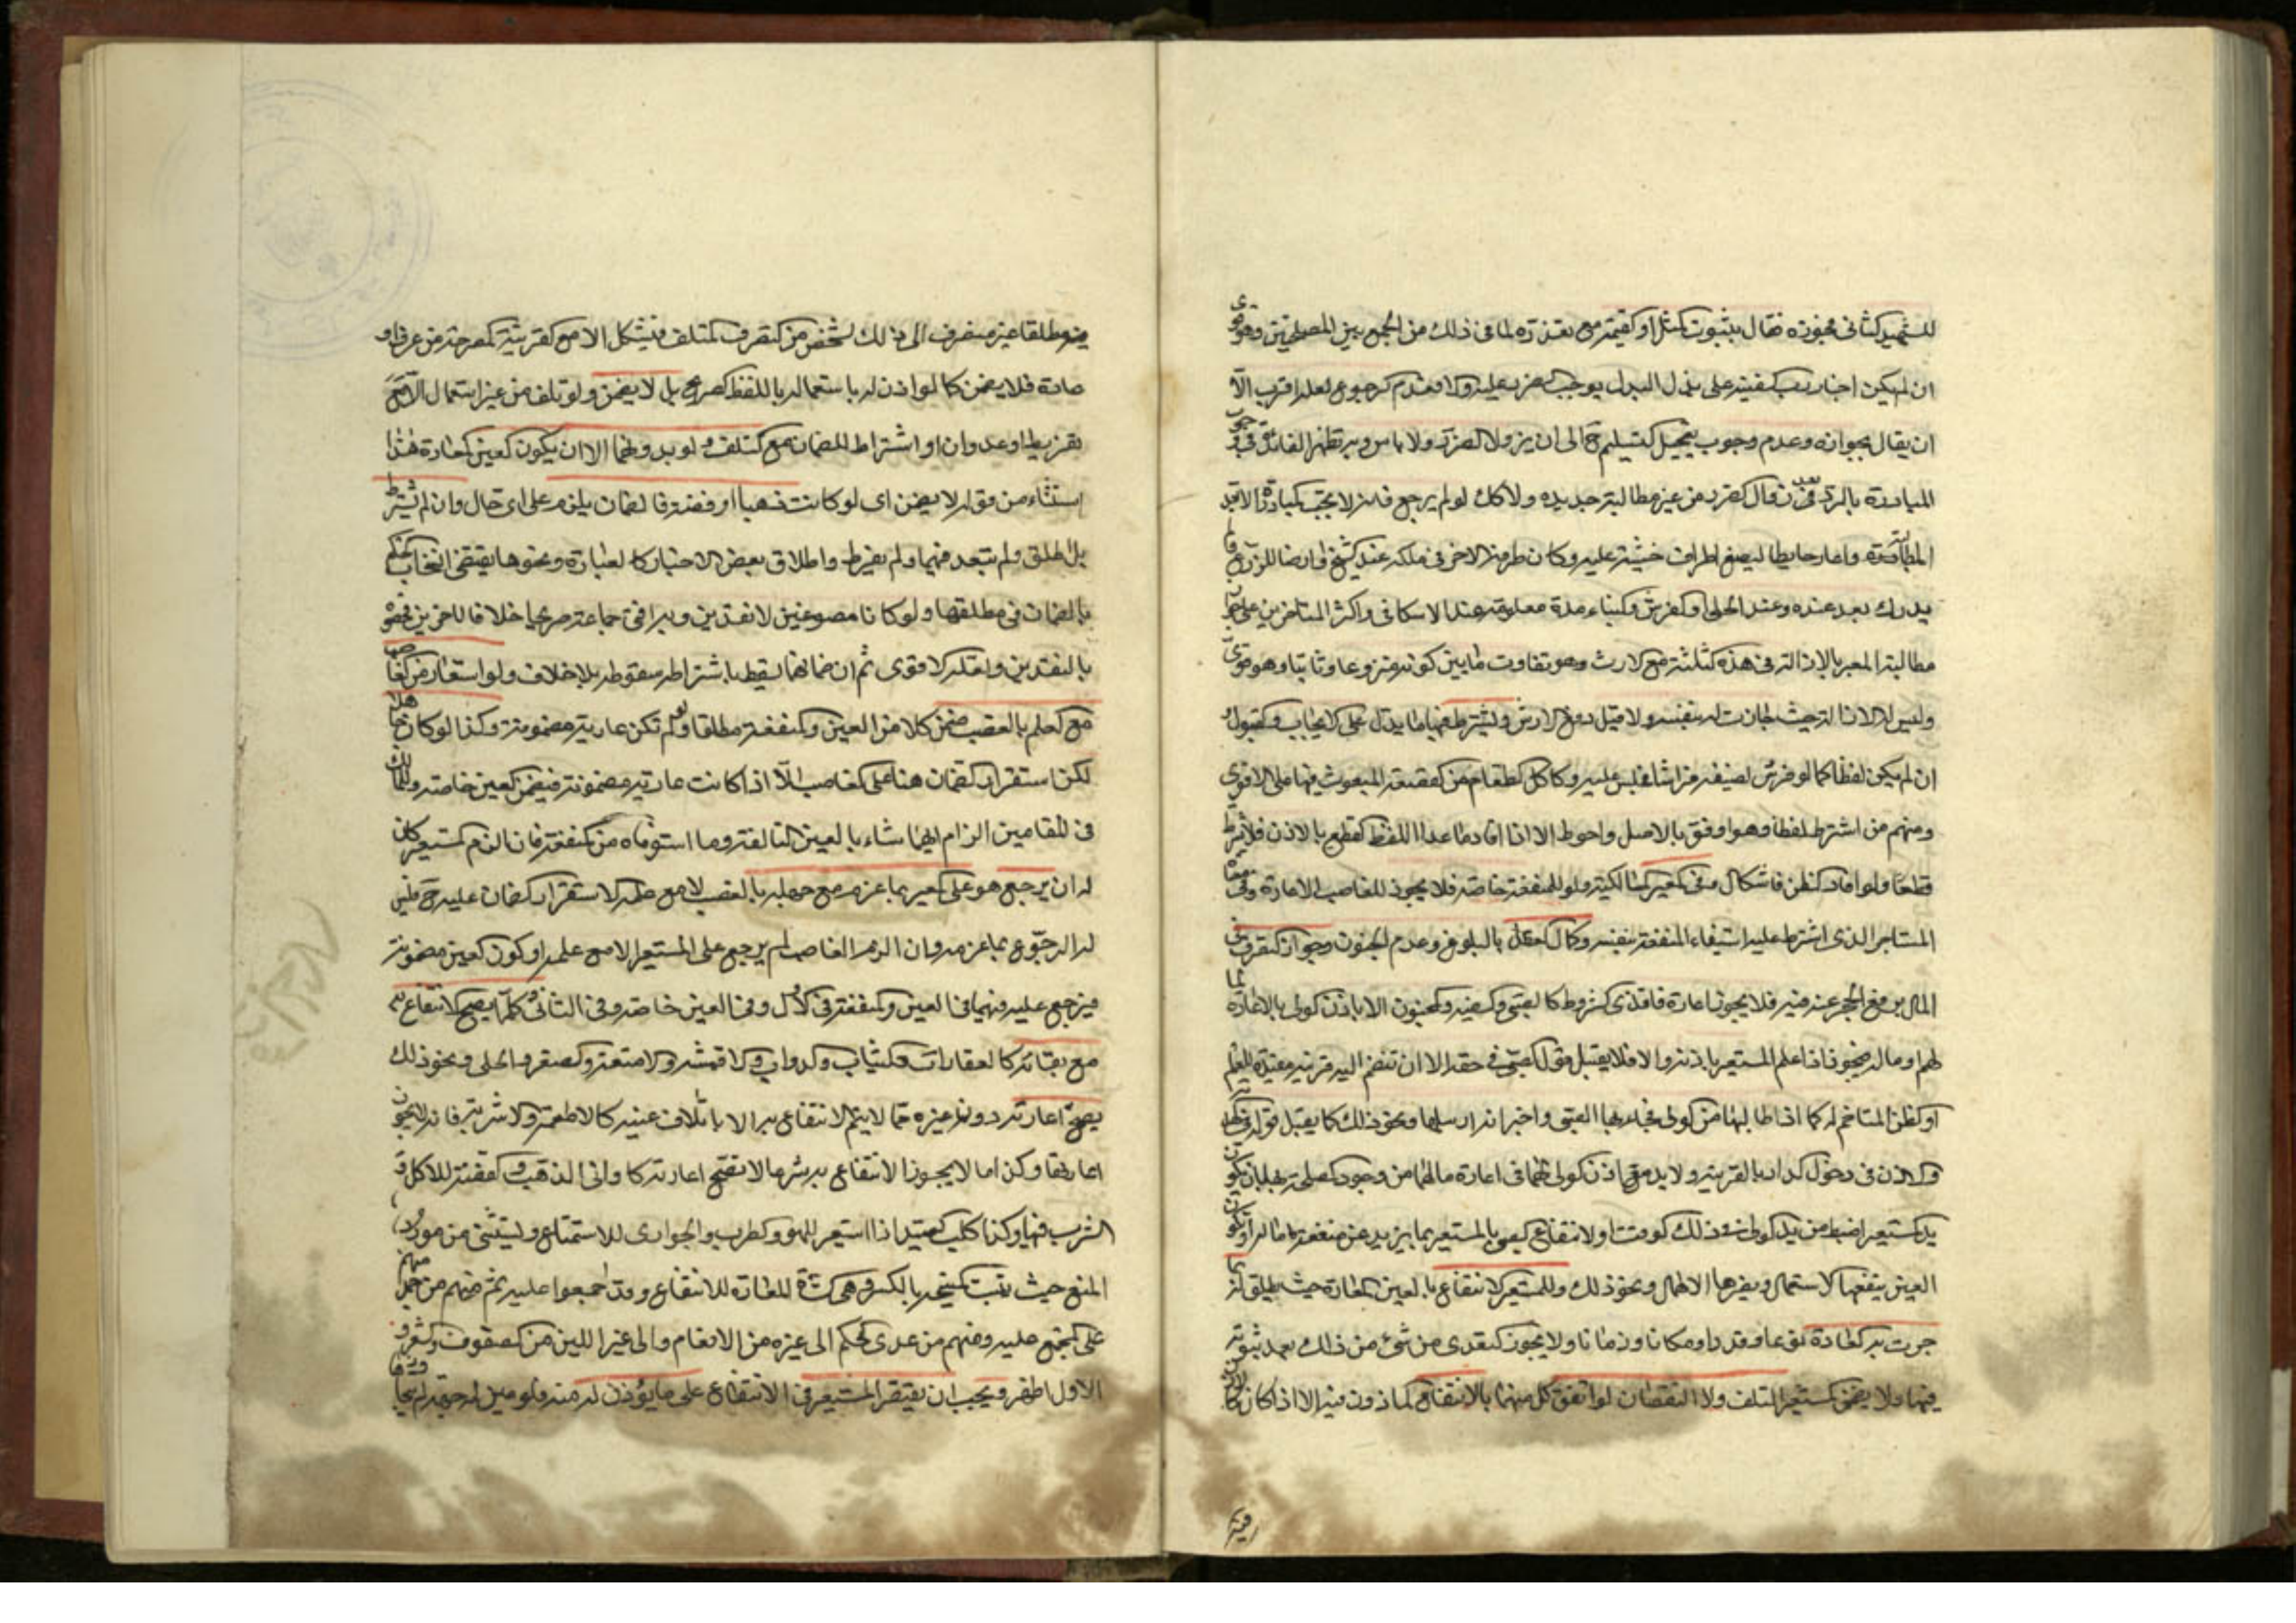 للشهيد الثاني فجوزه فقال بثبوت المثل او القيمة مع تعذره لما في ذلك من الجمع بين المصلحتين وهو قوي
ان لم يكن اجبار المستعير على بذل البدل يوجب الضرر عليه والا فعدم الرجوع لعله اقرب الا
ان يقال بجوازه وعدم وجوب تعجيل التسليم ح الى ان يزول الضرر ولا باس وبه تظهر الفائدة في وجوب
المبادرة بالرد بعد زوال الضرر من غير مطالبة جديدة ولا كك لو لم يرجع فانه لا يجب المبادرة الا بعد
المطالبة واعار حايطا ليضع اطراف خشبة عليه وكان طرفه الاخر في ملكه عند الشيخ وارضا للزرع فما
يدرك بعد عنده وعند الحلي والغرس والبناء مدة معلومة عند الاسكافي واكثر المتاخرين على جواز
مطالبة المعير بالازالة في هذه الثلثة مع الارث وهو تفاوت ما بين كونه منزوعا وثابتا وهو قوي
وليس له الازالة حيث جازت له بنفسه ولا قبل دفع الارش ويشترط فيها ما يدل على الايجاب والقبول
ان لم يكن لفظا كما لو فرش لضيفه فراشا فجلس عليه وكاكل الطعام من القصعة المبعوث فيها على الاقوى
ومنهم من اشترط لفظا وهو اوفق بالاصل واحوط الا اذا افاد ما عدا اللفظ القطع بالاذن فلا يشترط
قطعا ولو افاد الظن فاشكال وفي المعير المالكية ولو للمنفعة خاصة فلا يجوز للغاصب الاعارة وفي معناه
المستاجر الذي اشترط عليه استيفاء المنفعة بنفسه وكمال العقل بالبلوغ وعدم الجنون وجواز التصرف في
المال برفع الحجر عنه فيه فلا يجوز اعارة فاقدي الشروط كالصبي والسفيه والمجنون الا باذن الولي بالاعارة لما
لهم او ماله فيجوز اذا علم المستعير باذنه والا فلا يقبل قول الصبي في حقه الا ان تنضم اليه قرينة مفيدة للعلم
او الظن المتاخم له كما اذا طالبها من الولي فجاء بها الصبي واخبر انه ارسلها ونحو ذلك كما يقبل قوله في الهدية
والاذن في دخول الدار بالقرينة ولا بد مع اذن الولي لهما في اعارة مالهما من وجود المصلحة بها بان يكون
يد المستعير اضبط من يد الولي في ذلك الوقت او لانتفاع الصبي بالمستعير بما يزيد عن منفعة ماله او تكون
العين ينفعها الاستعمال ويضرها الاهمال ونحو ذلك وللمستعير الانتفاع بالعين المعارة حيث يطلق له بما
جرت به العادة نوعا وقدرا ومكانا وزمانا ولا يجوز التعدي من شئ من ذلك بعد ثبوته
فيها ولا يضمن المستعير التلف ولا النقصان لو اتفق كل منهما بالانتفاع الماذون فيه الا اذا كان الاذن
فيه
فيه مطلقا غير منصرف الى ذلك لشخص من التصرف المتلف فيشكل الا مع القرينة المصرحة من عرف او
عادة فلا يضمن كما لو اذن له باستعماله باللفظ الصريح بل لا يضمن ولو تلف من غير استعمال الا مع
تفريط او عدوان او اشتراط الضمان مع التلف ولو بدونهما الا ان يكون العين المعارة هذا
استثناء من قوله لا يضمن اى لو كانت ذهبا او فضة فالضمان يلزمه على اى حال وان لم يشترط
بل اطلق ولم يتعد فيهما ولم يفرط واطلاق بعض الاخبار كالعبارة ونحوها يقتضى انسحاب الحكم
بالضمان في مطلقها ولو كانا مصوغين لا نقدين وبه افتى جماعة صريحا خلافا للاخرين فخصوه
بالنقدين ولعله الاقوى ثم ان ضمانهما يسقط باشتراط سقوطه بلا خلاف ولو استعار من الغاصب
مع العلم بالغصب ضمن كلا من العين والمنفعة مطلقا ولو لم تكن عارية مضمونة وكذا لو كان جاهلا
لكن استقرار الضمان هنا على الغاصب الا اذا كانت عارية مضمونة فيضمن العين خاصة وللمالك
في المقامين الزام ايهما شاء بالعين التالفة وما استوفاه من المنفعة فان الزم المستعير كان
له ان يرجع هو على المعير بما غرم مع جهله بالغصب لا مع علمه لاستقرار الضمان عليه ح فليس
له الرجوع بما غرمه وان الزم الغاصب لم يرجع على المستعير الا مع علمه او كون العين مضمونة
فيرجع عليه فيهما في العين والمنفعة في الاول وفي العين خاصة وفي الثاني وكلما يصح الانتفاع به
مع بقائه كالعقارات والثياب والدواب والاقمشة والامتعة والصفر والحلي ونحو ذلك
يصح اعارته دون غيره مما لا يتم الانتفاع به الا باتلاف عينه كالاطعمة والاشربة فانه لا يجوز
اعارتها وكذا ما لا يجوز الانتفاع به شرعا لا تصح اعارته كاواني الذهب والفضة للاكل و
الشرب فيها وكذا كلب الصيد اذا استعير للهو والطرب والجوارى للاستمتاع ويستثنى من مورد
المنع حيث يثبت المنيحة بالكسر وهى الشاة المعارة للانتفاع وقد اجمعوا عليه ثم منهم من جمد
على المجمع عليه ومنهم من عدى الحكم الى غيره من الانعام والى غير اللبن من الصوف والشعر و
الاول اظهر ويجب ان يقتصر المستعير في الانتفاع على ما يؤذن له منه فلو عين له جهة لم يتجاوزها